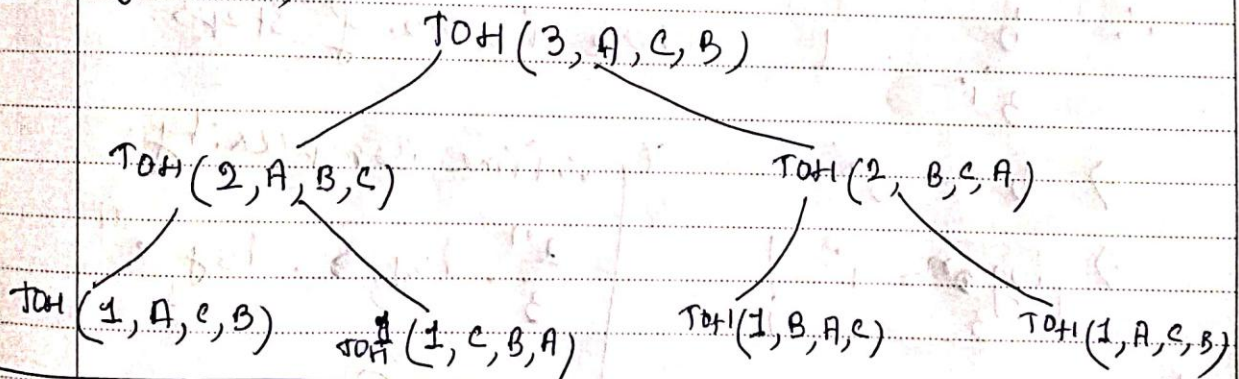 TOH (3, A, C, B)
TOH (2, A, B, C) TOH (2, B, C, A)
TOH (1, A, C, B) TOH (1, C, B, A) TOH (1, B, A, C) TOH (1, A, C, B)